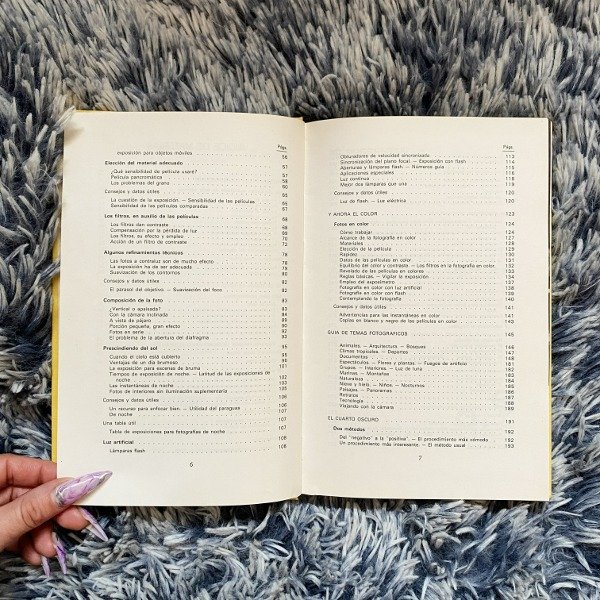 Págs.
exposición para objetos móviles 56
Elección del material adecuado 57
¿Qué sensibilidad de película usaré? 57
Película pancromática 59
Los problemas del grano 60
Consejos y datos útiles 67
La cuestión de la exposición. — Sensibilidad de las películas 67
Sensibilidad de las películas comparadas 68
Los filtros, en auxilio de las películas 68
Los filtros dan contraste 69
Compensación por la pérdida de luz 69
Los filtros, su efecto y empleo 70
Acción de un filtro de contraste 72
Algunos refinamientos técnicos 78
Las fotos a contraluz son de mucho efecto 78
La exposición ha de ser adecuada 79
Suavización de los contornos 80
Consejos y datos útiles 82
El parasol del objetivo. — Suavización del foco 82
Composición de la foto 83
¿Vertical o apaisada? 83
Con la cámara inclinada 84
A vista de pájaro 85
Porción pequeña, gran efecto 90
Fotos en serie 92
El problema de la abertura del diafragma 94
Prescindiendo del sol 95
Cuando el cielo está cubierto 95
Ventajas de un día brumoso 96
La exposición para escenas de bruma 101
Tiempos de exposición de noche. — Latitud de las exposiciones de
noche 102
Las instantáneas de noche 103
Fotos de interiores sin iluminación suplementaria 105
Consejos y datos útiles 106
Un recurso para enfocar bien. — Utilidad del paraguas 106
De noche 106
Una tabla útil 107
Tabla de exposiciones para fotografías de noche 107
Luz artificial 108
Lámparas flash 108
6
Págs.
Obturadores de velocidad sincronizada 113
Sincronización del plano focal. — Exposición con flash 114
Aberturas y lámparas flash. — Números guía 115
Aplicaciones especiales 116
Luz continua 118
Mejor dos lámparas que una 119
Consejos y datos útiles 120
Luz de flash. — Luz eléctrica 120
Y AHORA EL COLOR 123
Fotos en color 124
Cómo trabajar 124
Alcance de la fotografía en color 125
Materiales 126
Elección de la película 127
Rapidez 130
Datos de las películas en color 131
Equilibrio del color y contraste. — Los filtros en la fotografía en color 132
Revelado de las películas en colores 135
Reglas básicas. — Vigilar la exposición 136
Empleo del exposímetro 138
Fotografía en color con luz artificial 138
Fotografía en color con flash 139
Contemplando la fotografía 140
Consejos y datos útiles 141
Advertencias para las instantáneas en color 141
Copias en blanco y negro de las películas en color 143
GUIA DE TEMAS FOTOGRAFICOS 145
Animales. — Arquitectura. — Bosques 146
Climas tropicales. — Deportes
Documentos
Espectáculos. — Flores y plantas. — Fuegos de artificio
Grupos. — Interiores. — Luz de luna
Marinas. — Montañas
Naturaleza
Nieve y hielo. — Niños. — Nocturnos
Paisajes. — Panoramas
Retratos
Tecnología 188
Viajando con la cámara 189
EL CUARTO OSCURO 191
Dos métodos 192
Del "negativo" a la "positiva". — El procedimiento más cómodo 192
Un procedimiento más interesante. — El método usual 193
7